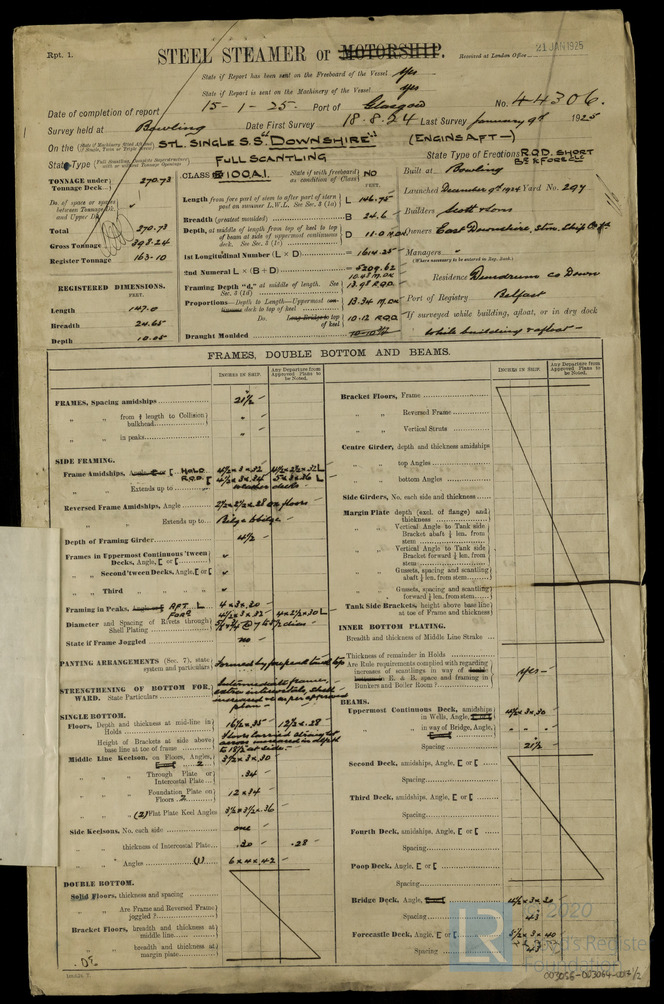 Rpt. 1.
STEEL STEAMER or MOTORSHIP.
Received at London Office
21 JAN 1925
State if Report has been sent on the Freeboard of the Vessel Yes
State if Report is sent on the Machinery of the Vessel Yes
Date of completion of report 15-1-25. Port of Glasgow No. 44306.
Survey held at Bowling Date First Survey 18.8.24 Last Survey January 9th 1925
On the STL. SINGLE S.S. "DOWNSHIRE" (ENGINS AFT-)
State Type FULL SCANTLING
State Type of Erections RQD. SHORT
B5 & FORECLE
TONNAGE under Tonnage Deck 270.73
Do. of space or spaces between Tonnage Dk. and Upper Dk.
Total 270.73
Gross Tonnage 393.24
Register Tonnage 163.10
REGISTERED DIMENSIONS.
FEET.
Length 147.0
Breadth 24.65
Depth 10.05
CLASS 100A1. State if with freeboard as condition of Class NO
FEET.
Length from fore part of stem to after part of stern post on summer L.W.L. See Sec. 3 (1a) L 146.75
Breadth (greatest moulded) B 24.6
Depth, at middle of length from top of keel to top of beam at side of uppermost continuous deck. See Sec. 3 (1c) D 11.0
1st Longitudinal Number (L × D) = 1614.25
2nd Numeral L × (B + D) = 5209.62
Framing Depth "d," at middle of length. See Sec. 3 (1d) 10.43 M.DK
13.98 RQD.
Proportions—Depth to Length—Uppermost continuous deck to top of keel 13.34 M.DK
Do. Long Bridge to top of keel 10.12 RQD
Draught Moulded
Built at Bowling
Launched December 9th 1924 Yard No. 297
Builders Scott & Sons
Owners East Downshire, Stm. Ship Co. Ltd.
Managers "
(Where necessary to be entered in Reg. Book.)
Residence Dundrum Co Down
Port of Registry Belfast
If surveyed while building, afloat, or in dry dock
While building & afloat -
FRAMES, DOUBLE BOTTOM AND BEAMS.
INCHES IN SHIP.
Any Departure from Approved Plans to be Noted.
FRAMES, Spacing amidships 21½
" " from ⅕ length to Collision bulkhead "
" " in peaks "
SIDE FRAMING.
Frame Amidships, Angle or [ HOLD 4½ x 3 x .32 4½ x 2½ x .32 L
RQD. [ 4½ x 3 x .34 5 x 3 x .36 L
" Extends up to weather decks
Reversed Frame Amidships, Angle 2½ x 2½ x .28 on floors
" " Extends up to Bilge to bilge
Depth of Framing Girder 4½
Frames in Uppermost Continuous 'tween Decks, Angle, [ or [
" Second 'tween Decks, Angle, [ or [
" Third " " "
Framing in Peaks, Angle or [ AFT. L 4 x 3 x .30
FORE 4½ x 3 x .32 4 x 2½ x .30 L
Diameter and Spacing of Rivets through Shell Plating
State if Frame Joggled no
PANTING ARRANGEMENTS (Sec. 7), state system and particulars Formed by forepeak tank top
STRENGTHENING OF BOTTOM FORWARD. State Particulars Intermediate frames, extra intercostals, shell increased as per approved plan
SINGLE BOTTOM.
Floors, Depth and thickness at mid-line in Holds 16½ x .35 12½ x .28
Height of Brackets at side above base line at toe of frame
Middle Line Keelson, on Floors, Angles, 3½ x 3 x .30
" " Through Plate or Intercostal Plate .34
" " Foundation Plate on Floors 12 x .34
" " (2) Flat Plate Keel Angles 3½ x 3½ x .36
Side Keelsons, No. each side one
" " thickness of Intercostal Plate .30 .28
" " Angles (1) 6 x 4 x .42
DOUBLE BOTTOM.
Solid Floors, thickness and spacing
" " Are Frame and Reversed Frame joggled?
Bracket Floors, breadth and thickness at middle line
" " breadth and thickness at margin plate
Bracket Floors, Frame
" " Reversed Frame
" " Vertical Struts
Centre Girder, depth and thickness amidships
" " top Angles
" " bottom Angles
Side Girders, No. each side and thickness
Margin Plate depth (excl. of flange) and thickness
" " Vertical Angle to Tank side Bracket abaft ¼ len. from stem
" " Vertical Angle to Tank side Bracket forward ¼ len. from stem
" " Gussets, spacing and scantling abaft ¼ len. from stem
" " Gussets, spacing and scantling forward ¼ len. from stem
Tank Side Brackets, height above base line at toe of Frame and thickness
INNER BOTTOM PLATING.
Breadth and thickness of Middle Line Strake
Thickness of remainder in Holds
Are Rule requirements complied with regarding increases of scantlings in way of E. & B. space and framing in Bunkers and Boiler Room? Yes -
BEAMS.
Uppermost Continuous Deck, amidships in Wells, Angle, 4½ x 3 x .30
" " in way of Bridge, Angle, " " "
Spacing 21½
Second Deck, amidships, Angle, [ or [
Spacing
Third Deck, amidships, Angle, [ or [
Spacing
Fourth Deck, amidships, Angle, [ or [
Spacing
Poop Deck, Angle, [ or [
Spacing
Bridge Deck, Angle, 4½ x 3 x .30
Spacing 43
Forecastle Deck, Angle, [ or [ 5½ x 3 x .40
Spacing 43
LR
2020
Lloyd's Register
Foundation
003056-003064-0041/2